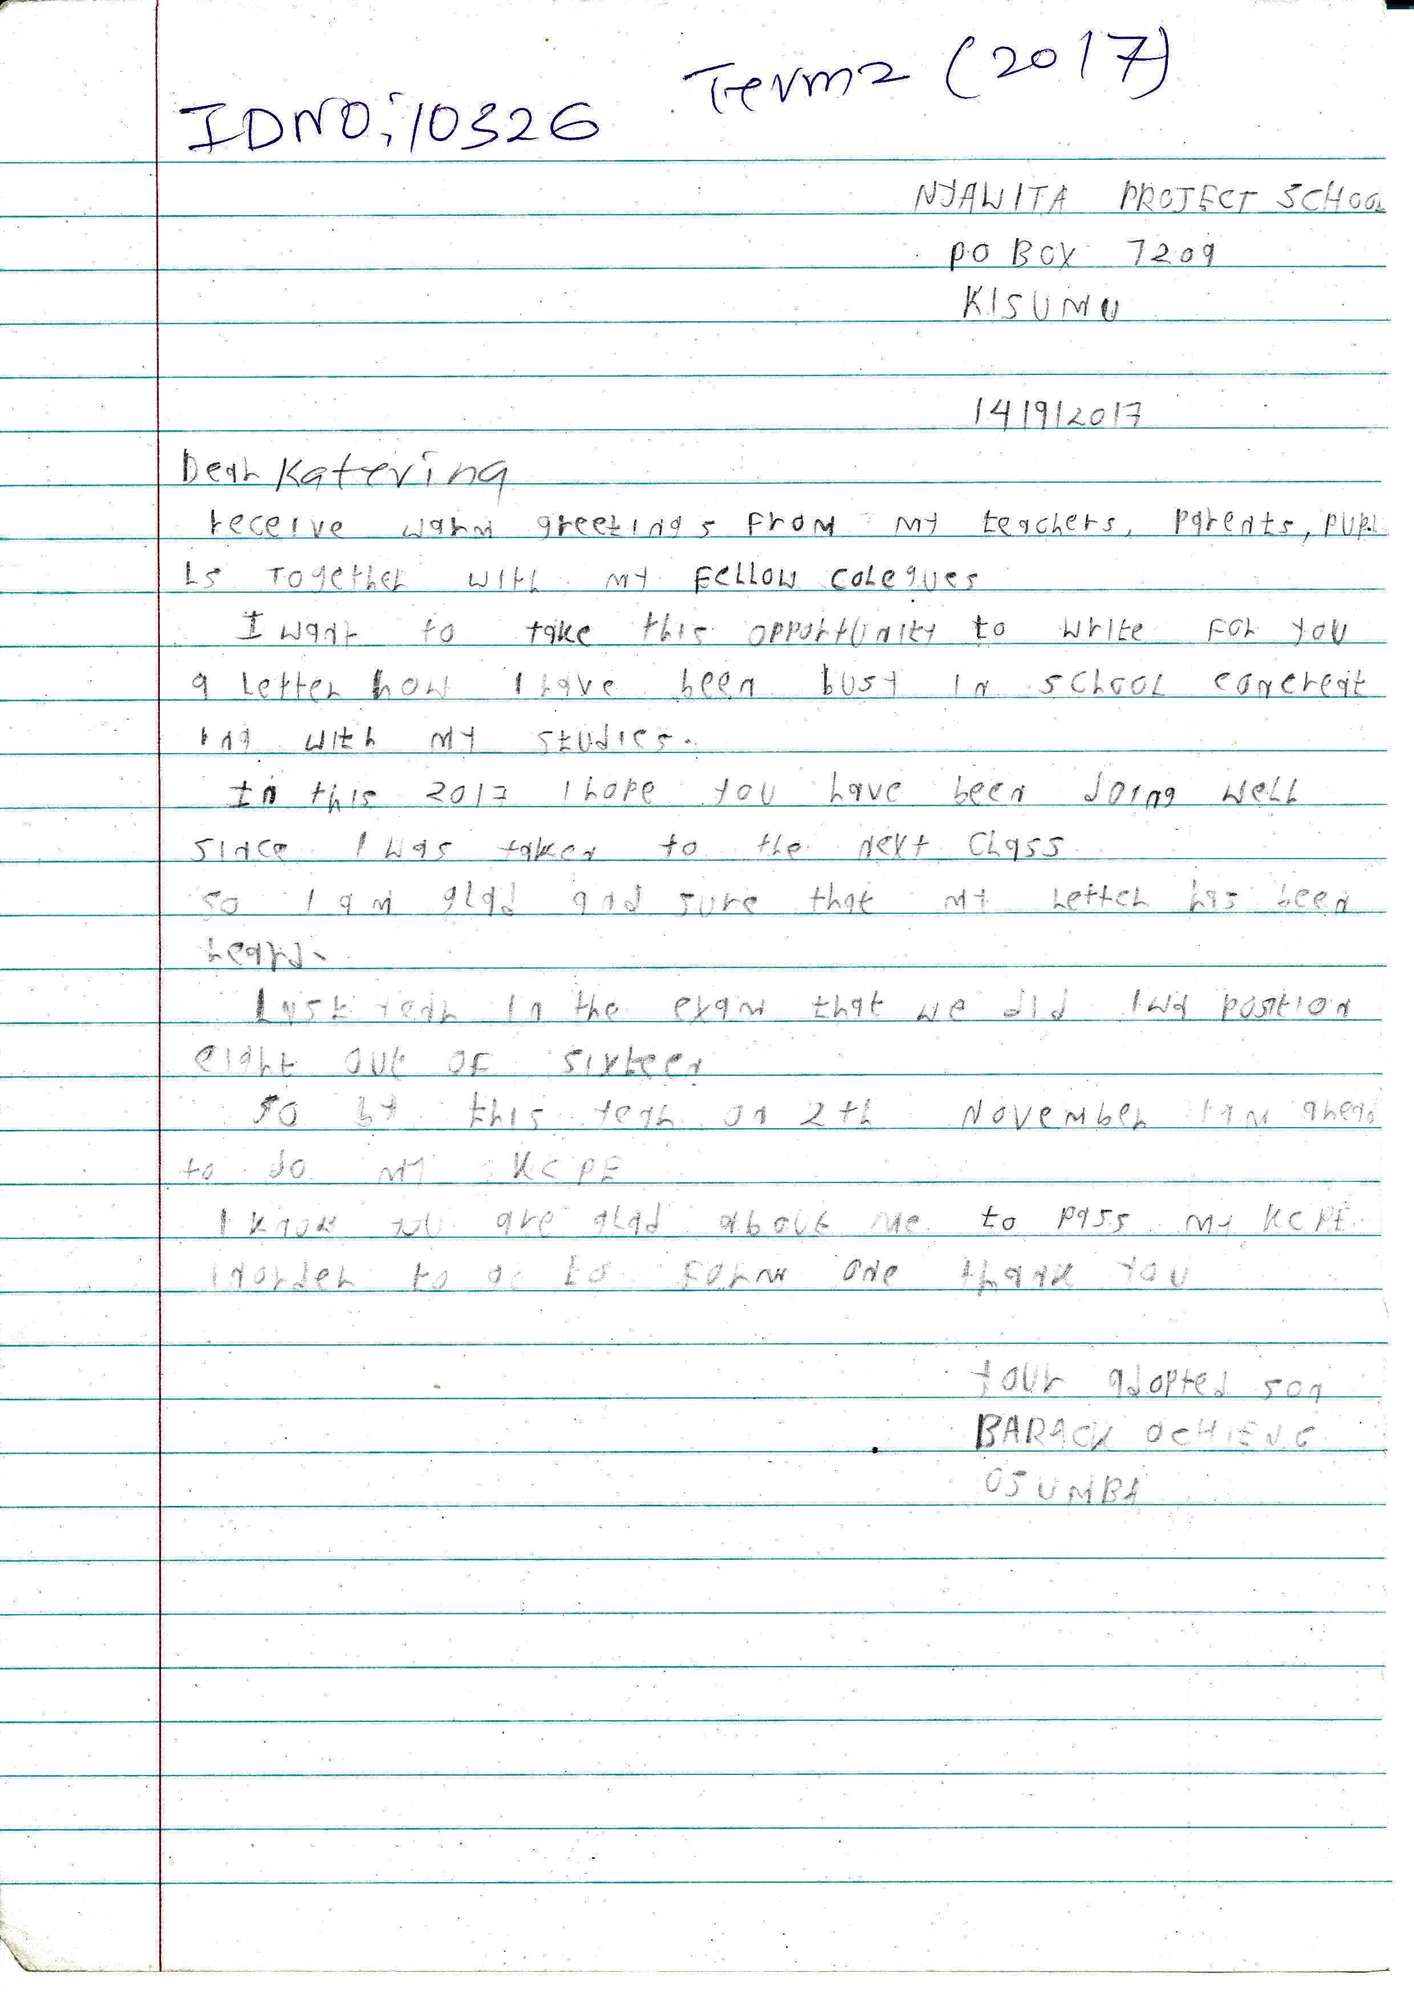 Term 2 (2017)
IDNO; 10326
NYAWITA PROJECT SCHOOL
PO BOX 7209
KISUMU
14/9/2017
Dear Katerina
receive warm greetings from my teachers, parents, pupi
ls together with my fellow colegues
I want to take this opportunity to write for you
a letter how I have been busy in school concreat
ing with my studies.
In this 2017 I hope you have been doing well
since I was taken to the next class
so I am glad and sure that my letter has been
heard.
Last year in the exam that we did I wa position
eight out of sixteen
so by this year on 2th November I am ahead
to do my KCPE
I know you are glad about me to pass my KCPE
inorder to go to form one thank you
your adopted son
BARACK OCHIENG
OSUMBA